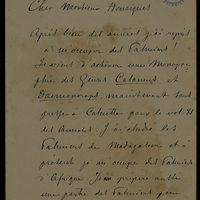 Cher Monsieur Henriques
Après bien des années j'ai repris
à m'occuper des Palmiers!
Je viens d'achever une Monogra-
phie des Genres Calamus et
Daemonorops, maintenant sous
presse à Calcutta pour le vol XI
des Annals. J'ai étudié les
Palmiers de Madagascar et à
présent je m'occupe des Palmiers
d'Afrique. J'en prépare
une partie des Palmiers pour